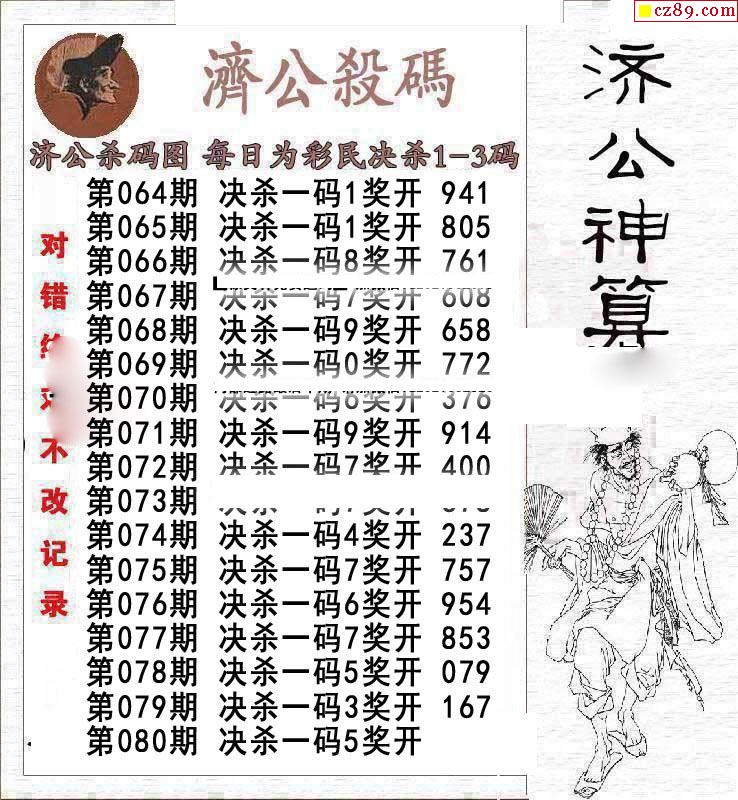 cz89.com
濟公殺碼
济公杀码图 每日为彩民决杀1-3码
第064期 决杀一码1奖开 941
第065期 决杀一码1奖开 805
第066期 决杀一码8奖开 761
第067期 决杀一码7奖开 608
第068期 决杀一码9奖开 658
第069期 决杀一码0奖开 772
第070期 决杀一码6奖开 376
第071期 决杀一码9奖开 914
第072期 决杀一码7奖开 400
第073期
第074期 决杀一码4奖开 237
第075期 决杀一码7奖开 757
第076期 决杀一码6奖开 954
第077期 决杀一码7奖开 853
第078期 决杀一码5奖开 079
第079期 决杀一码3奖开 167
第080期 决杀一码5奖开
对错
不改记录
济公神算